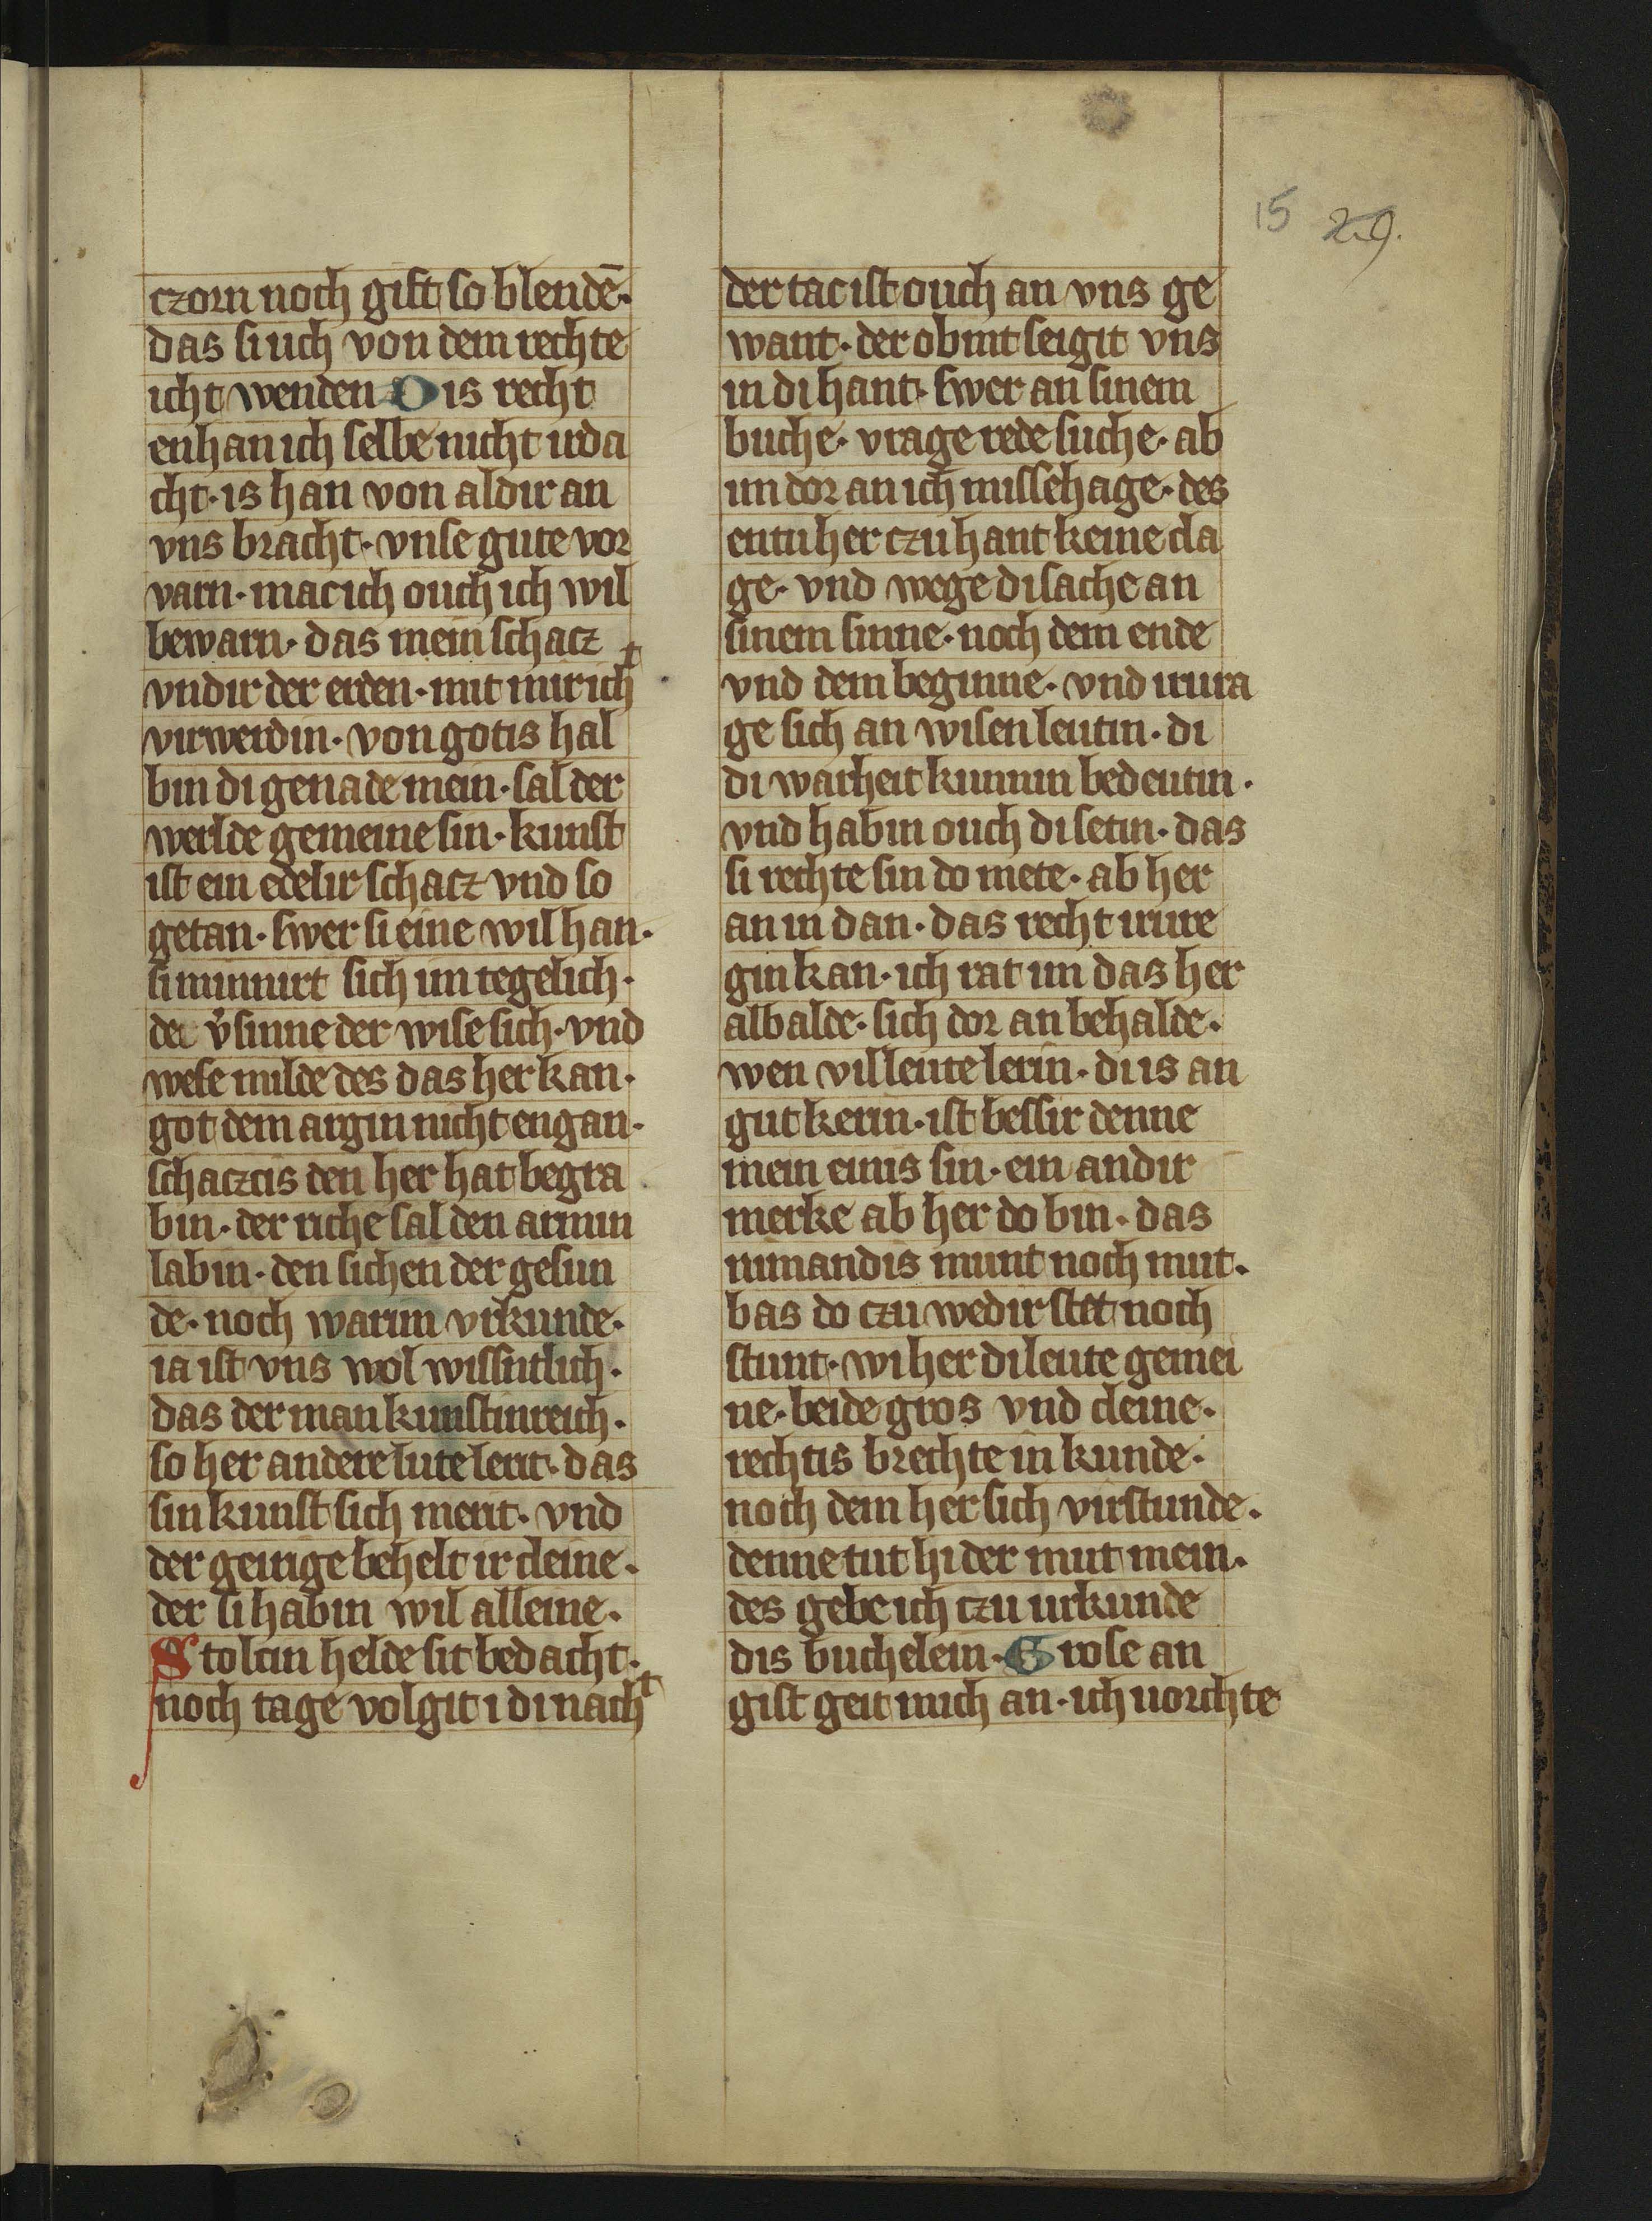 15 29.
czorn noch gift so blendē·
das si uch von dem rechte
icht wenden Dis recht
enhan ich selbe nicht irda
cht· is han von aldir an
vns bracht· vnse gute vor
varn· mac ich ouch ich wil
bewarn· das mein schacz
vndir der erden· mit mir icht
virwerdin· von gotis hal
bin di genade mein· sal der
werlde gemeine sin· kunst
ist ein edelir schacz vnd so
getan· swer si eine wil han·
si minnirt sich im tegelich·
der v᷑sinne der wise sich· vnd
wese milde des das her kan·
got dem argin nicht engan·
schaczcis den her hat begra
bin· der riche sal den armin
labin· den sichen der gesun
de· noch warim vrkunde·
ia ist vns wol wissntlich·
das der man kunstinreich·
so her andere lute lerit· das
sin kunst sich merit· vnd
der geinige behelt ir cleine·
der si habin wil alleine·
Stolcin helde sit bedacht·
noch tage volgit i di nacht
der tac ist ouch an vns ge
want· der obint seigit vns
in di hant· swer an sinem
buche· vrage rede suche· ab
im dor an ich missehage· des
entu her czu hant keine cla
ge· vnd wege di sache an
sinem sinne· noch dem ende
vnd dem beginne· vnd irura
ge sich an wisen leutin· di
di warheit kunnin bedeutin·
vnd habin ouch di setin· das
si rechte sin do mete· ab her
an in dan· das recht irure
gin kan· ich rat im das her
albalde· sich dor an behalde·
wen vil leute lerin· di is an
gut kerin· ist bessir denne
mein einis sin· ein andir
merke ab her do bin· das
nimandis munt noch mut·
bas do czu wedir stet noch
stunt· wi her di leute gemei
ne· beide gros vnd cleine·
rechtis brechte in kunde·
noch dem her sich virstunde·
denne tut hi der mut mein·
des gebe ich czu urkunde
dis buchelein· Grose an
gist geit mich an· ich uorchte